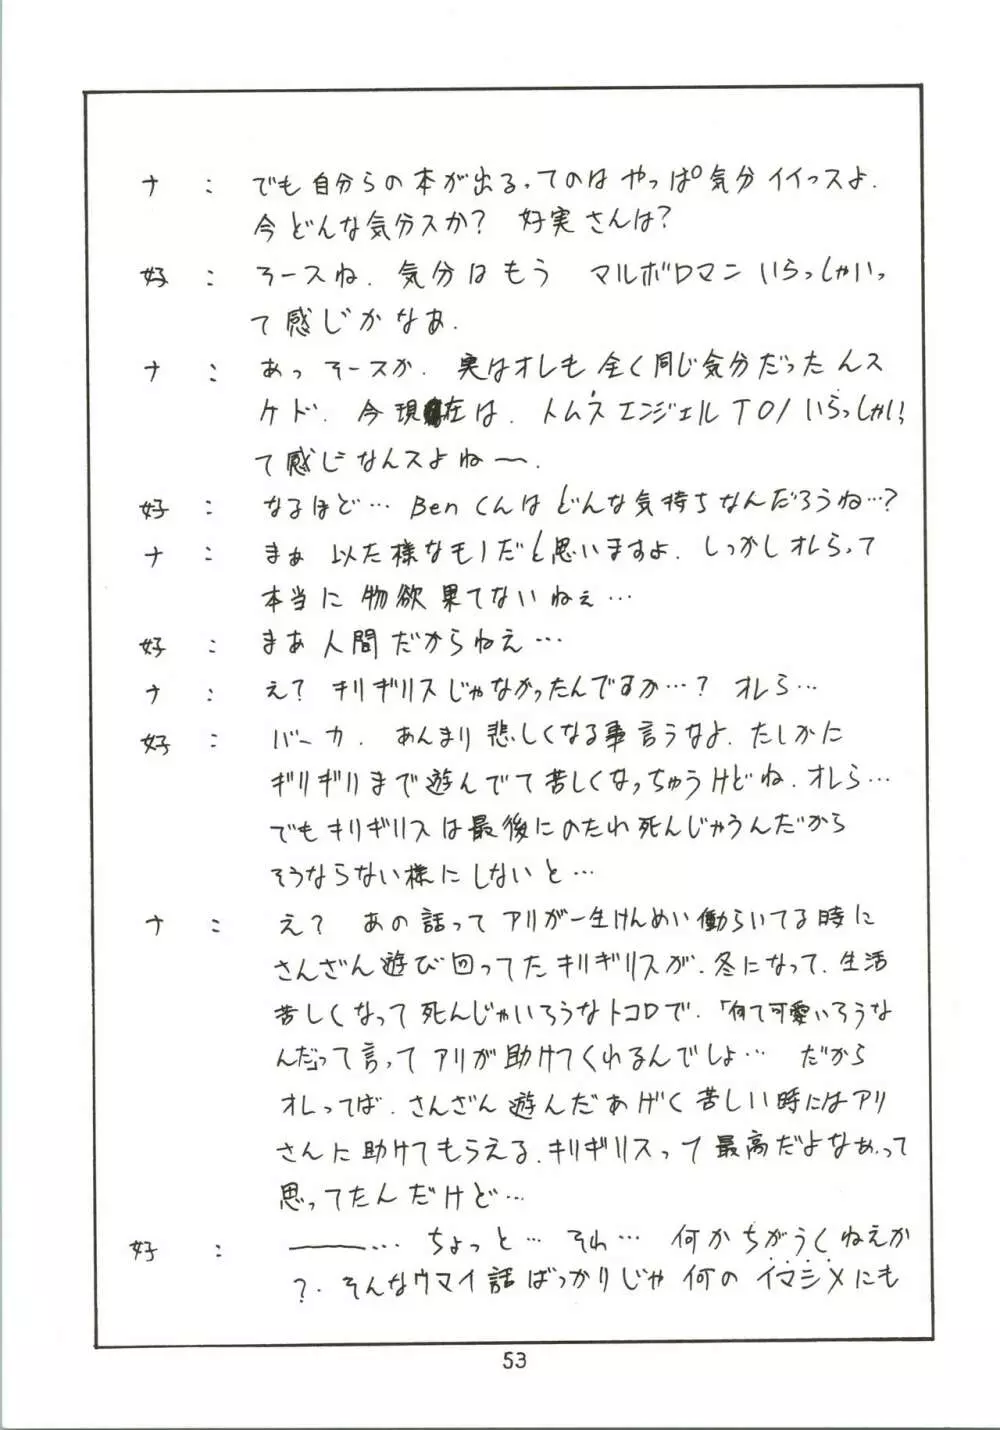 ナ： でも自分らの本が出るってのは やっぱ気分イイっスよ.
今どんな気分スか？ 好実さんは？
好： そースね. 気分はもう マルボロマン いらっしゃいっ
て感じかなあ.
ナ： あっ そースか. 実はオレも 全く同じ気分だったんス
ケド. 今現在は. トムスエンジェルT01いらっしゃいっ
て感じなんスよねー.
好： なるほど… Benくんは どんな気持ちなんだろうね…？
ナ： まぁ 以た様なモノだと思いますよ. しっかしオレらって
本当に 物欲果てないねぇ…
好： まあ人間だからねえ…
ナ： え？ キリギリスじゃなかったんですか…？ オレら…
好： バーカ. あんまり悲しくなる事言うなよ. たしかに
ギリギリまで遊んでて苦しくなっちゅうけどね. オレら…
でもキリギリスは最後にのたれ死んじゃうんだから
そうならない様にしないと…
ナ： え？ あの話ってアリが一生けんめい働らいてる時に
さんざん遊び回ってたキリギリスが. 冬になって. 生活
苦しくなって死んじゃいろうなトコロで. 「何て可愛いろうな
んだ」って言ってアリが助けてくれるんでしょ… だから
オレってば. さんざん遊んだあげく苦しい時にはアリ
さんに助けてもらえる. キリギリスって最高だよなあ. って
思ってたんだけど…
好： ――… ちょっと… それ… 何かちがうくねえか
？. そんなウマイ話ばっかりじゃ何のイマシメにも
53